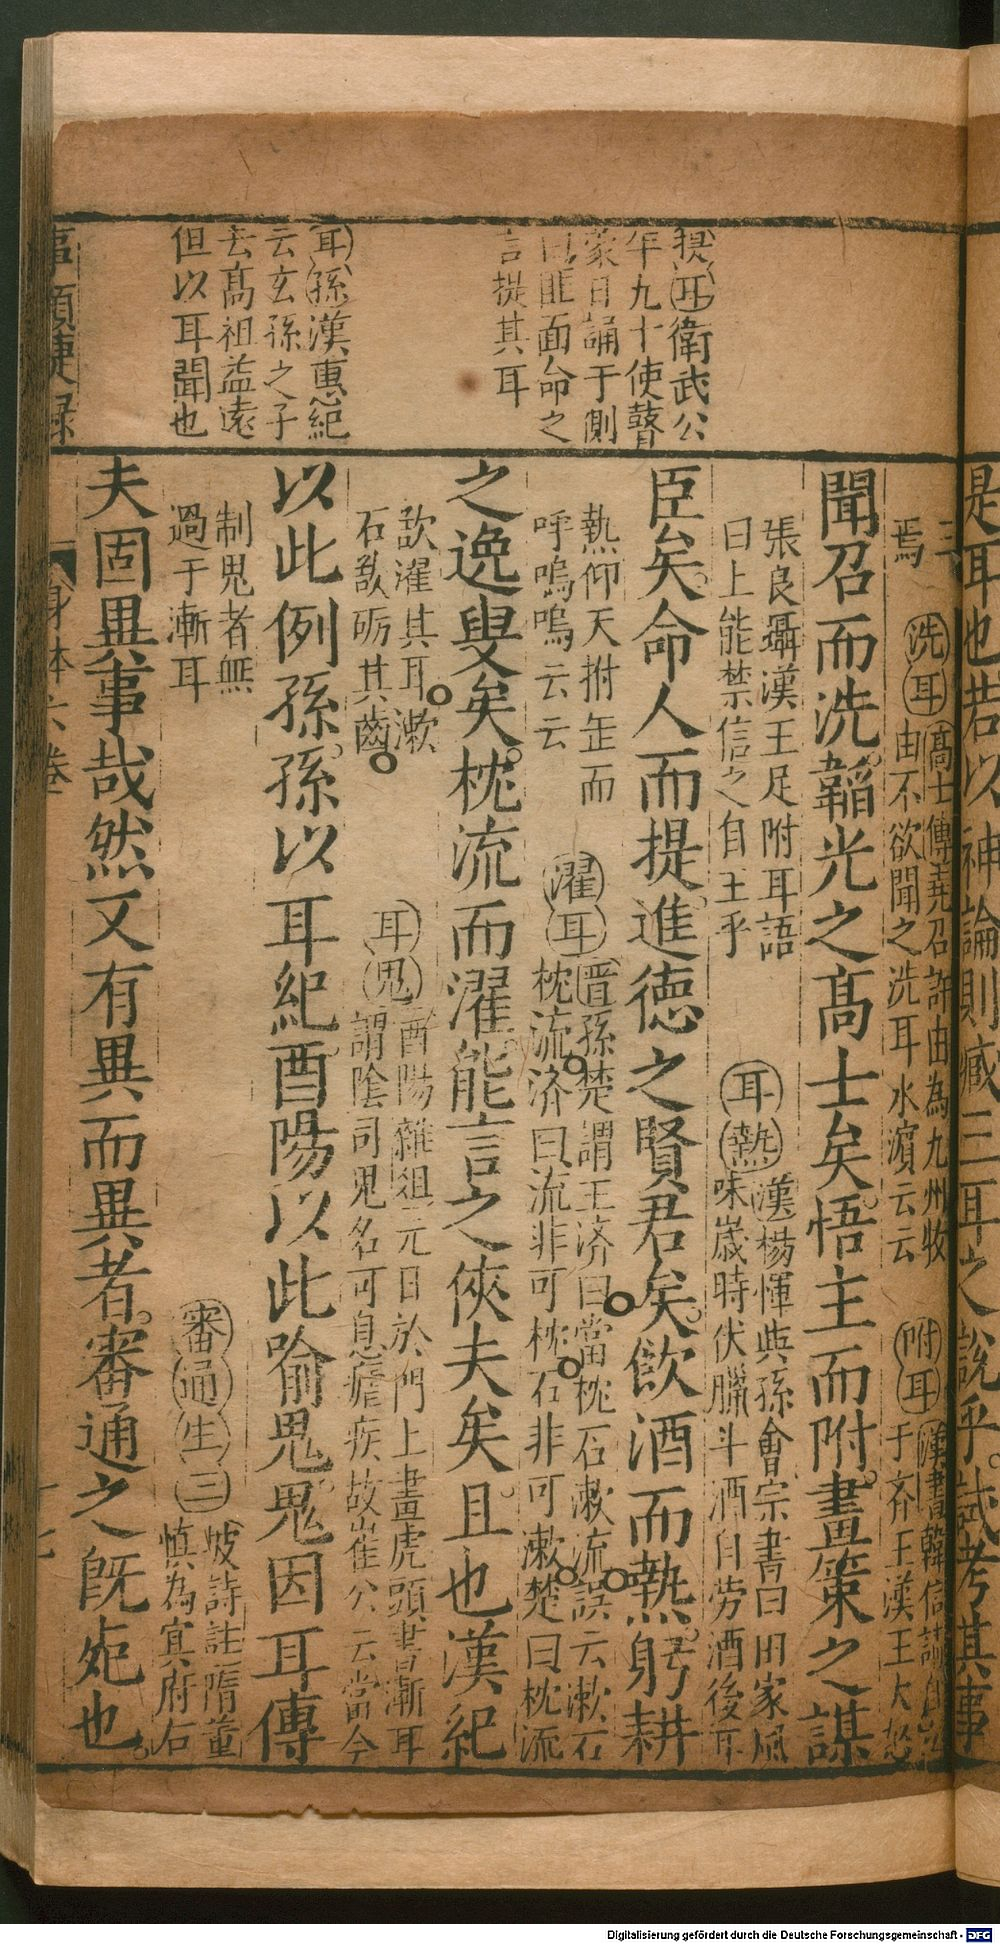 提耳衛武公
年九十使瞽
蒙日誦于側
曰匪面命之
言提其耳
耳孫漢惠紀
云玄孫之子
去高祖益遠
但以耳聞也
事類捷錄
是耳也若以神論則臧三耳之說乎試考其事
三
焉
洗耳高士傳堯召許由為九州牧
由不欲聞之洗耳水濵云云
附耳漢書韓信請自立
于齊王漢王大怒
聞召而洗韜光之高士矣悟主而附畫策之謀
張良躡漢王足附耳語
曰上能禁信之自王乎
耳熱漢楊惲與孫會宗書曰田家風
味嵗時伏臘斗酒自劳酒後耳
臣矣命人而提進德之賢君矣飲酒而熱躬耕
熱仰天拊缶而
呼嗚嗚云云
濯耳晋孫楚謂王济曰當枕石漱流誤云漱石
枕流济曰流非可枕石非可漱楚曰枕流
之逸叟矣枕流而濯能言之俠夫矣且也漢紀
欲濯其耳漱
石欲砺其齒
耳鬼酉陽雜俎元日於門上畫虎頭書漸耳
謂陰司鬼名可息瘧疾故崔公云當今
以此例孫孫以耳紀酉陽以此喻鬼鬼因耳傳
制鬼者無
過于漸耳
審通生三坡詩註隋董
慎為寅府右
夫固異事哉然又有異而異者審通之既死也
身体六卷
十七
Digitalisierung gefördert durch die Deutsche Forschungsgemeinschaft - DFG